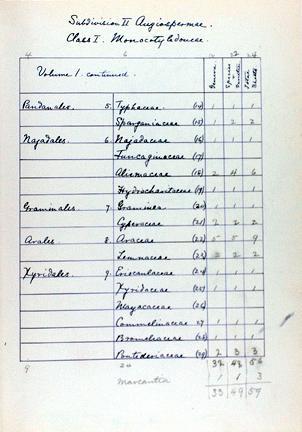 Subdivision II Angiospermae.
Class I. Monocotyledoneae.
4 6 10 22 24
Volume 1. continued. Genera Species + Varieties Total Sheets
Pandanales. 5. Typhaceae (14) 1 1 1
Sparganiaceae (15) 1 2 2
Najadales. 6. Najadaceae (16) 1 1 1
Juncaginaceae (17)
Alismaceae (18) 2 4 6
Hydrocharitaceae (19) 1 1 1
Graminales. 7. Gramineae (20) 1 1 1
Cyperaceae (21) 2 2 2
Arales. 8. Araceae (22) 5 5 9
Lemnaceae (23) 2 2
Xyridales. 9. Eriocaulaceae (24) 1 1 1
Xyridaceae (25) 1 1 1
Mayacaceae (26)
Commelinaceae 27 1 1 1
Bromeliaceae (28) 1 1 1
Pontederiaceae (29) 2 3 3
9 24 32 48 56
Marcantia 1 1 3
33 49 59